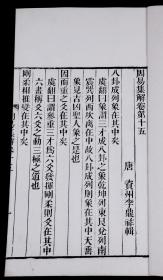 周易集解卷第十五
唐 資州李鼎祚輯
八卦成列象在其中矣
虞翻曰象謂三才成八卦之象乾坤列東艮兌列南
震巽列西坎離在中故八卦成列則象在其中天垂
象見吉凶聖人象之是也
因而重之爻在其中矣
虞翻曰謂參重三才爲六爻發揮剛柔則爻在其中
六畫稱爻六爻之動三極之道也
剛柔相推變在其中矣